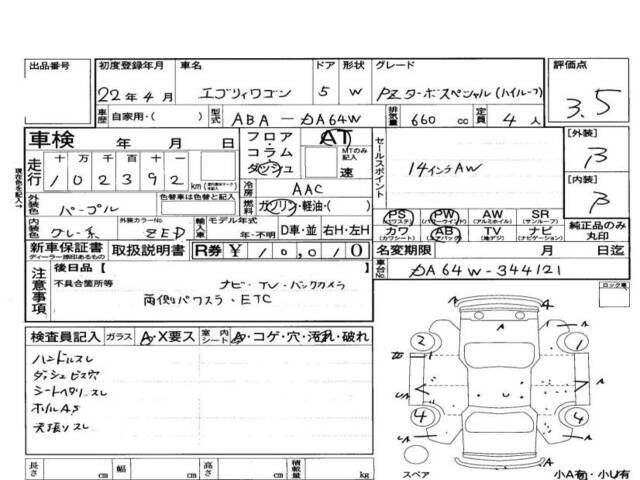 出品番号
初度登録年月 車名 ドア 形状 グレード 評価点
22年4月 エブリィワゴン 5 W PZターボスペシャル(ハイルーフ) 3.5
車歴 自家用・( ) 型式 ABA-DA64W 排気量 660 cc 定員 4人
車検 年 月 日
フロア・コラム ダッシュ AT MTのみ記入 速
セールスポイント 14インチAW
[外装] B
[内装] B
現在色を記入→
走行 十 万 千 百 十 一
102392 km
冷房 AAC
外装色 パープル 色替車は色替と記入
燃料 ガソリン・軽油・( )
内装色 グレー系 外装カラーNo. ZED 輸入車 モデル年式 年・不明 D車・並 右H・左H
PS (パワステ) PW (パワーウインド) AW (アルミホイル) SR (サンルーフ)
カワ (カワシート) AB (エアバック) TV (地デジ) ナビ (ナビゲーション)
純正品のみ丸印
新車保証書 ディーラー捺印あるもの 取扱説明書 R券 ¥10,010
名変期限 月 日迄
注意事項
後日品【 】
不具合箇所等 ナビ・TV・バックカメラ
両側パワスラ・ETC
車台No. DA64W-344121
ロック車
検査員記入 ガラス A・X要ス 室内シート A・コゲ・穴・汚れ・破れ
ハンドルスレ
ダッシュビス穴
シートヘタリ・スレ
ホイルAS
天張りスレ
A
2 1
A
4 4
A
長さ cm 幅 cm 高さ cm 積載量 kg
スペア
小A有・小U有